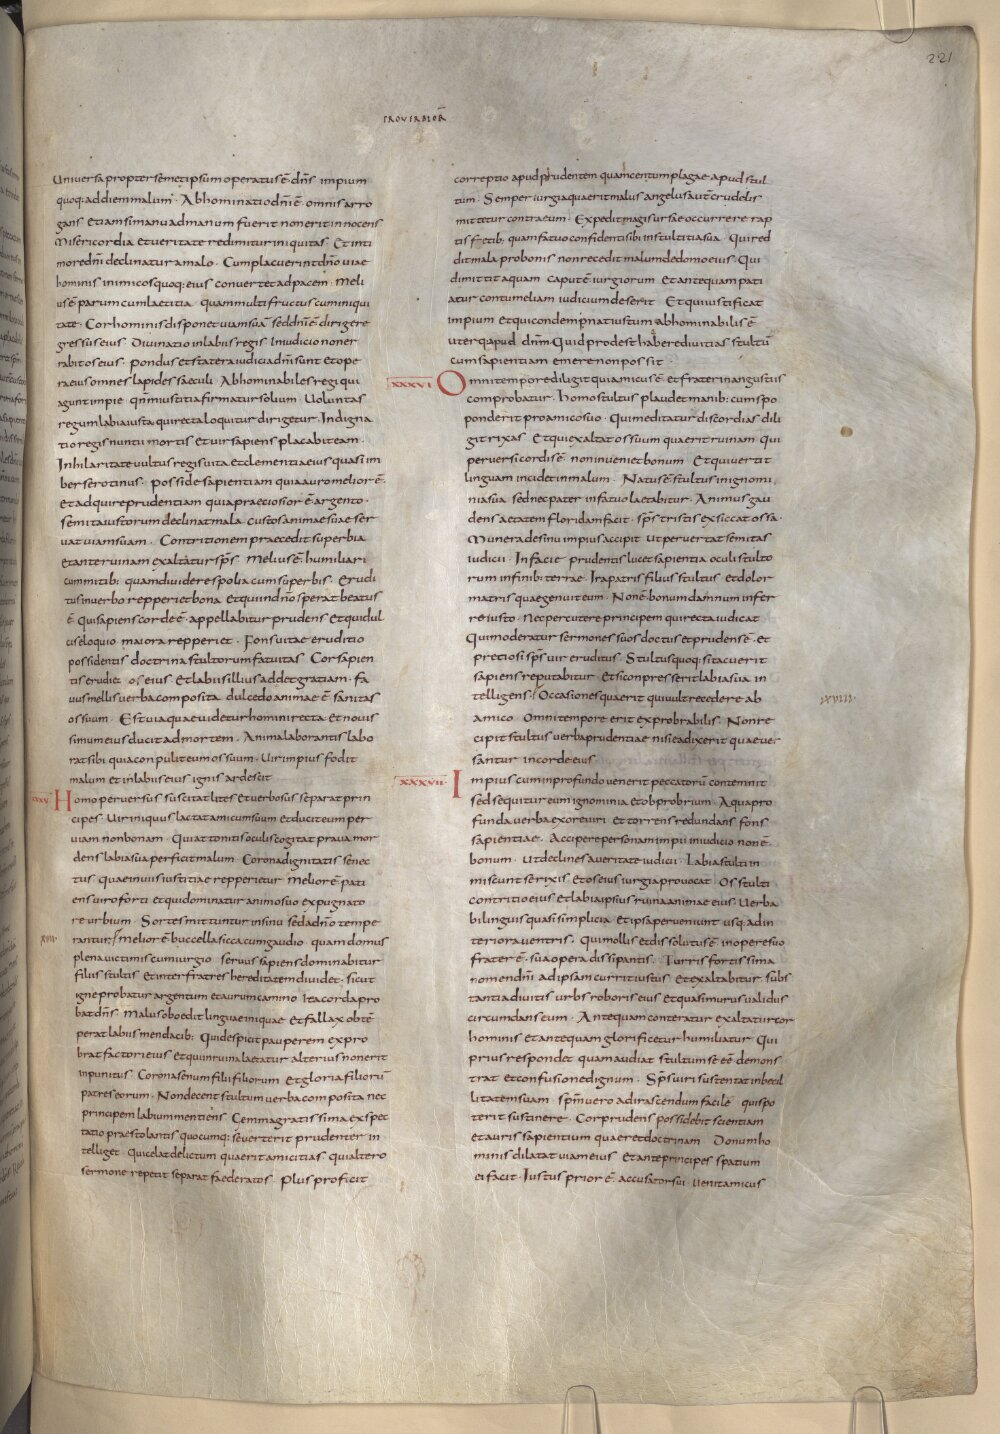 221
PROVERBIOR̄
Universa propter semetipsum operatus ē dn̄s impium
quoq; ad diem malum · Abhominatio dn̄i ē omnis arro
gans etiamsi manu ad manum fuerit non erit innocens
Misericordia et veritate redimitur iniquitas Et in ti
more dn̄i declinatur a malo · Cum placuerint dn̄o viae
hominis inimicos quoq; eius convertet ad pacem · Meli
us ē parum cum laetitia quam multi fructus cum iniqui
tate · Cor hominis disponet viam suā sed dn̄i ē dirigere
gressus eius Divinatio in labiis regis In iudicio non er
rabit os eius · Pondus et statera iudicia dn̄i sunt et ope
ra eius omnes lapides saeculi · Abhominabiles regi qui
agunt impie qm̄ iustitia firmatur solium Voluntas
regum labia iusta qui recta loquitur dirigetur · Indigna
tio regis nuntii mortis et vir sapiens placabit eam ·
In hilaritate vultus regis vita et clementia eius quasi im
ber serotinus · Posside sapientiam quia auro melior ē ·
et adquire prudentiam quia praeciosior ē argento ·
semita iustorum declinat mala custos animae suae ser
vat viam suam · Contritionem praecedit superbia
et ante ruinam exaltatur sps̄ · Melius ē humiliari
cum mitib; quam dividere spolia cum superbis · Erudi
tus in verbo repperiet bona et qui in dn̄o sperat beatus
ē Qui sapiens corde ē · appellabitur prudens et qui dul
cis eloquio maiora repperiet · Fons vitae eruditio
possidentis doctrina stultorum fatuitas Cor sapien
tis erudiet os eius et labiis illius addet gratiam · Fa
vus mellis verba composita dulcedo animae ē sanitas
ossuum · Est via quae videtur homini recta et novis
simum eius ducit ad mortem · Anima laborantis labo
rat sibi quia conpulit eum os suum · Vir impius fodit
malum et in labiis eius ignis ardescit
XXXV Homo perversus suscitat lites et verbosus separat prin
cipes · Vir iniquus lactat amicum suum et ducit eum per
viam non bonam · Qui attonitis oculis cogitat prava mor
dens labia sua perficit malum · Corona dignitatis senec
tus quae in viis iustitiae repperietur Melior ē pati
ens viro forti et qui dominatur animo suo expugnato
re urbium · Sortes mittuntur in sinu sed a dn̄o tempe
XVII· rantur; Melior ē buccella sicca cum gaudio quam domus
plena victimis cum iurgio servus sapiens dominabitur
filiis stultis et inter fratres hereditatem dividet · sicut
igne probatur argentum et aurum camino ita corda pro
bat dn̄s Malus oboedit linguae iniquae et fallax obtē
perat labiis mendacib; Qui despicit pauperem expro
brat factori eius et qui in ruina laetatur alterius non erit
inpunitus · Corona senum filii filiorum et gloria filiorū
patres eorum · Non decent stultum verba composita nec
principem labium mentiens Gemma gratissima expec
tatio praestolantis quocumq; se verterit prudenter in
telliget · Qui celat delictum quaerit amicitias qui altero
sermone repetit separat faederatos Plus proficit
correptio apud prudentem quam centum plagae apud stul
tum · Semper iurgia quaerit malus angelus aut̄ crudelis
mittetur contra eum · Expedit magis ursae occurrere rap
tis fetib; quam fatuo confidenti sibi in stultitia sua · Qui red
dit mala pro bonis non recedit malum de domo eius · Qui
dimittit aquam caput ē iurgiorum Et antequam pati
atur contumeliam iudicium deserit Et qui iustificat
impium et qui condempnat iustum abhominabilis ē
uterq; apud dn̄m Quid prodest habere divitias stultū
cum sapientiam emere non possit ·
XXXVI Omni tempore diligit qui amicus ē et frater in angustiis
comprobatur · homo stultus plaudet manib; cum spo
ponderit pro amico suo Qui meditatur discordias dili
git rixas Et qui exaltat ossuum quaerit ruinam Qui
perversi cordis ē non inveniet bonum Et qui vertit
linguam incidet in malum · Natus ē stultus in ignomi
nia sua sed nec pater in fatuo laetabitur · Animus gau
dens aetatem floridam facit · sps̄ tristis exsiccat ossa ·
Munera de sinu impius accipit ut pervertat semitas
iudicii · In facie prudentis lucet sapientia oculi stulto
rum in finib; terrae · Ira patris filius stultus et dolor
matris quae genuit eum · Non ē bonum damnum infer
re iusto · Nec percutere principem qui recta iudicat
Qui moderatur sermones suos doctus et prudens ē · et
pretiosi sps̄ vir eruditus Stultus quoq; si tacuerit
sapiens reputabitur Et si conpresserit labia sua in
telligens; Occasiones quaerit qui vult recedere ab XVIII·
amico Omni tempore erit exprobrabilis Non re
cipit stultus verba prudentiae nisi ea dixerit quae ver
santur in corde eius
XXXVII Impius cum in profundo venerit peccatorū contemnit
sed sequitur eum ignominia et obprobrium Aqua pro
funda verba ex ore viri et torrens redundans fons
sapientiae · Accipere personam impii in iudicio non ē ·
bonum · ut declines a veritate iudicii · Labia stulti in
miscunt se rixis et os eius iurgia provocat Os stulti
contritio eius et labia ipsius ruina animae eius Verba
bilinguis quasi simplicia et ipsa perveniunt usq; ad in
teriora ventris · Qui mollis et dissolutus ē in opere suo
frater ē · sua opera dissipantis · Turris fortissima
nomen dn̄i ad ipsam currit iustus et exaltabitur · subs
tantia divitis urbs roboris eius et quasi murus validus
circumdans eum · Antequam conteratur exaltatur cor
hominis et antequam glorificetur humiliatur Qui
prius respondet quam audiat stultum se eē demons
trat et confusione dignum · Sps̄ viri sustentat inbecil
litatem suam spm̄ vero ad irascendum facilē quis po
terit sustinere · Cor prudens possidebit scientiam
et auris sapientium quaeret doctrinam Donum ho
minis dilatat viam eius et ante principes spatium
ei facit · Iustus prior ē accusator sui venit amicus